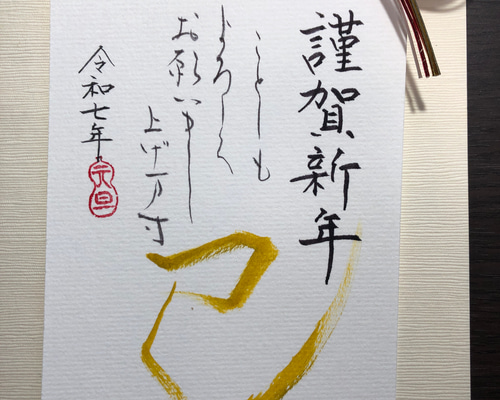 謹賀新年
ことしも
よろしく
お願い申し
上げ万寸
令和七年
元旦
巳